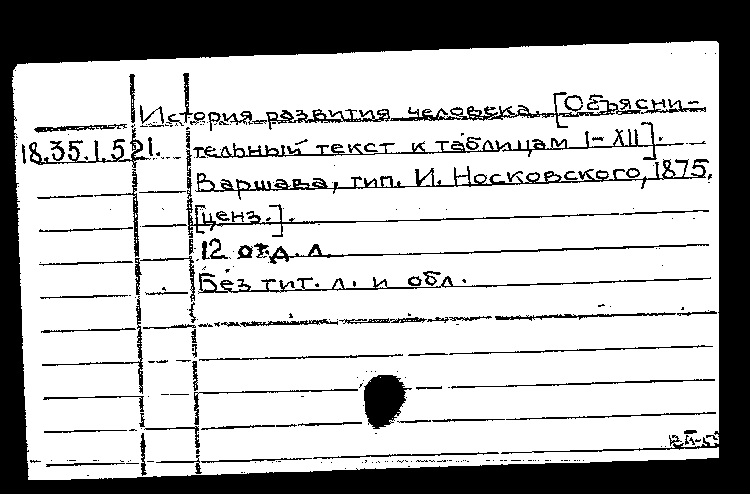 История развития человека. [Объясни-
18.35.1.521. тельный текст к таблицам I-XII].
Варшава, тип. И. Носковского, 1875.
[ценз.].
12 отд. л.
Без тит. л. и обл.